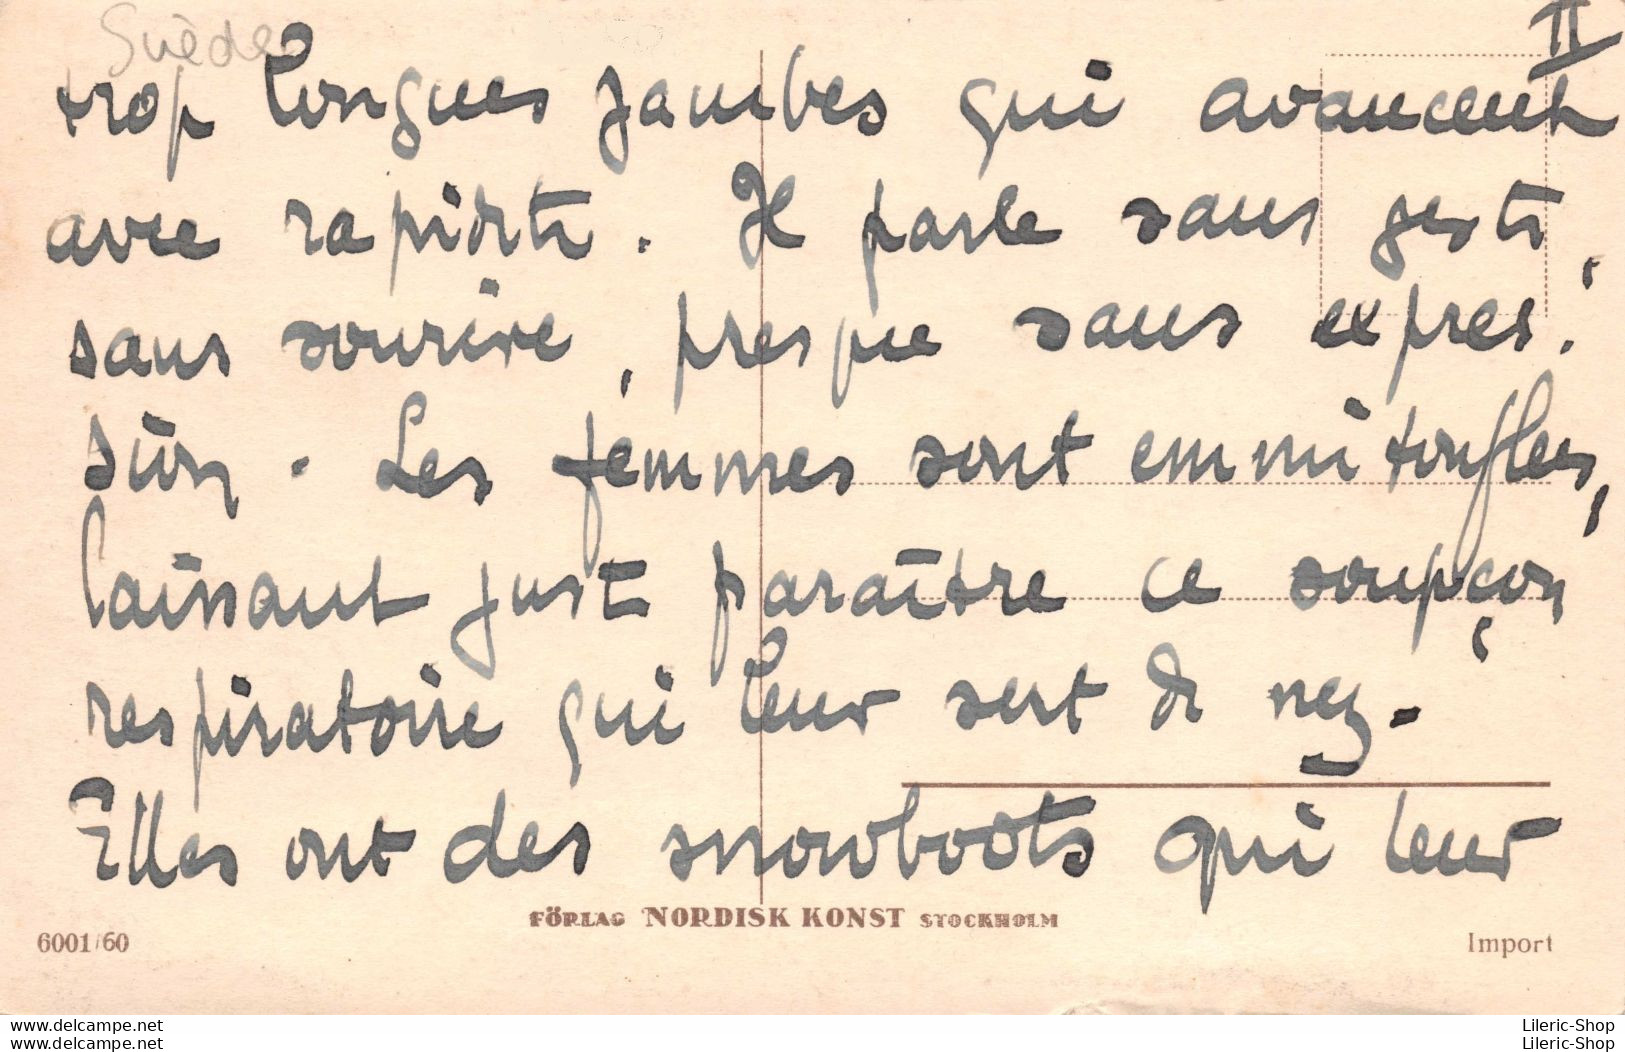 Suède
II
trop longues jambes qui avancent
avec rapidité. Il parle sans geste,
sans sourire, presque sans expres-
sion. Les femmes sont emmitouflées,
laissant juste paraître ce soupçon
respiratoire qui leur sert de nez.
Elles ont des snowboots qui leur
FÖRLAG NORDISK KONST STOCKHOLM
6001/60
Import
www.delcampe.net
www.delcampe.net
Lileric-Shop
Lileric-Shop